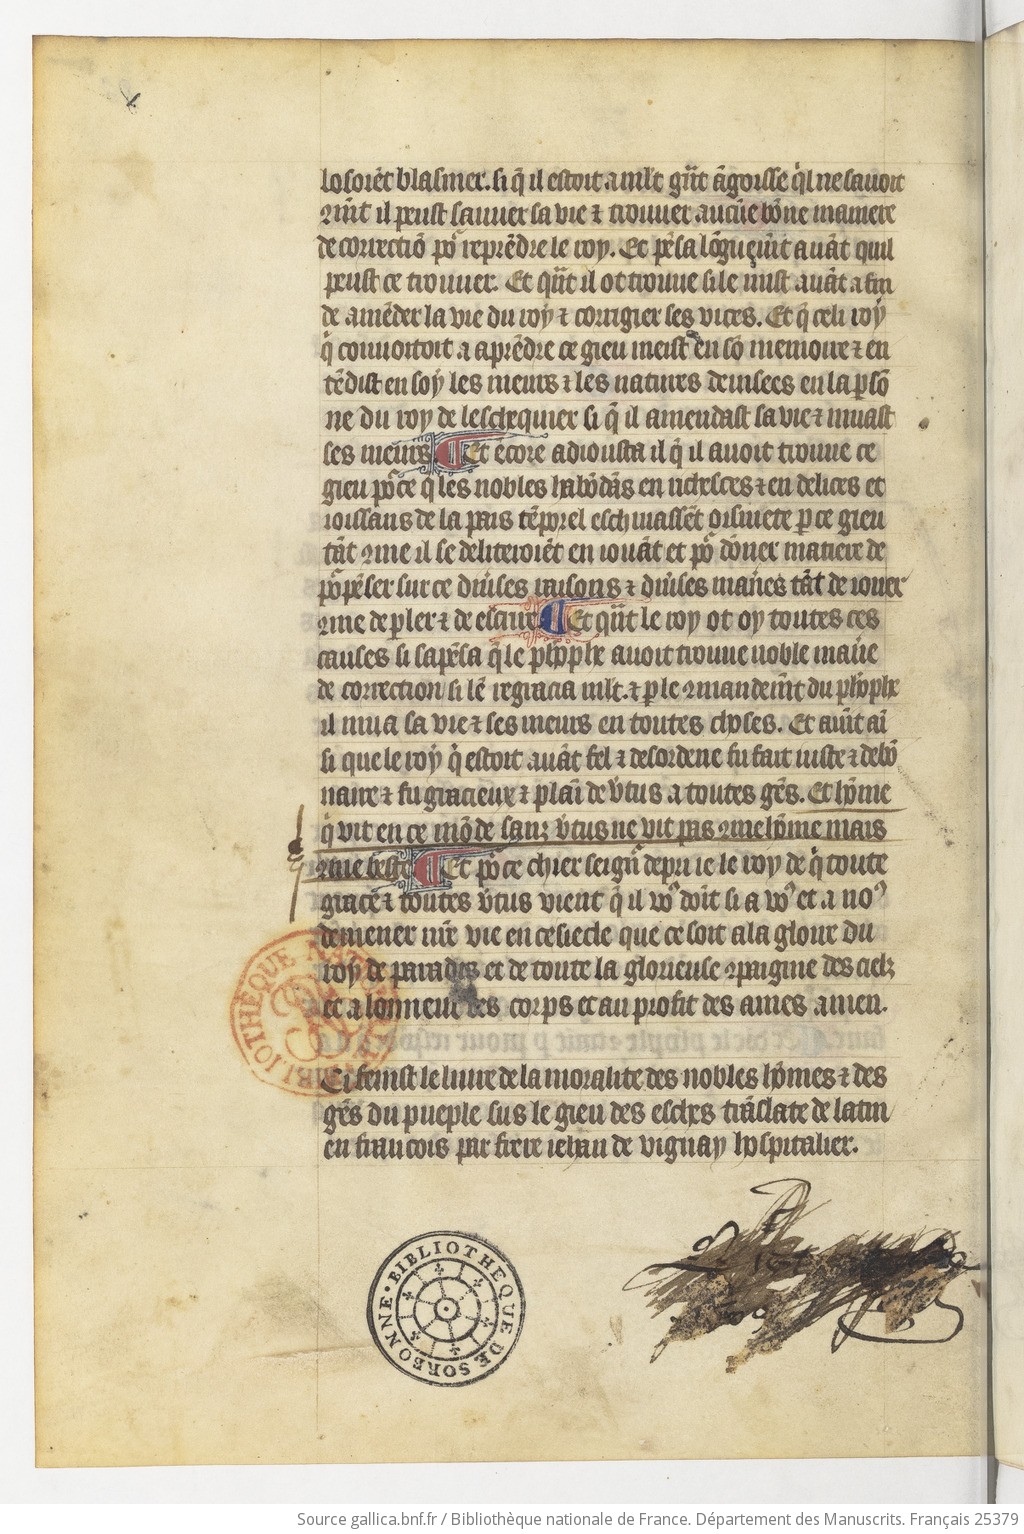 losoiēt blasmer. si q̄ il estoit a mlt grāt āgoisse q̇l ne savoit
ꝯmēt il peust sauver sa vie ⁊ trouver aucūe bōne maniere
de correctiō por̄ reprēdre le roy. Et pēsa lōguemēt avāt quil
peust ce trouver. Et qūt il ot trouve si le mist avāt a fin
de amēder la vie du roy ⁊ corrigier ses vices. Et q̄ celi roy
q̇ convoitoit a aprēdre ce gieu meist en sō memoire ⁊ en
tēdist en soy les meurs ⁊ les natures devisees en la ꝑsō
ne du roy de leschequier si q̄ il amendast sa vie ⁊ muast
ses meurs ¶ Et ēcore adiousta il q̄ il avoit trouve ce
gieu por̄ce q̄ les nobles habōdās en richesces ⁊ en delices et
ioissans de la pais tēporel eschivassēt oisivete ꝑ ce gieu
tāt ꝯme il se deliteroiēt en iouāt et por̄ dōner matiere de
por̄pēser sur ce div̄ses raisons ⁊ div̄ses manr̄es tāt de iouer
ꝯme de ꝑler ⁊ de escrire ¶ Et qūt le roy ot oy toutes ces
causes si sapēsa q̄ le phōphe avoit trouve noble manr̄e
de correction si lē regracia mlt. ⁊ ꝑ le ꝯmandemēt du phōphe
il mua sa vie ⁊ ses meurs en toutes choses. Et avīt aī
si que le roy q̇ estoit avāt fel ⁊ desordene fu fait iuste ⁊ debō
naire ⁊ fu gracieux ⁊ plaī de v̄tus a toutes gēs. Et hōme
q̇ vit en ce mōde sanz v̄tus ne vit pas ꝯme hōme mais
ꝯme beste ¶ Et por̄ce chier seignr̄ depri ie le roy de q̇ toute
grace ⁊ toutes v̄tus vient q̄ il voꝰ doīt si a voꝰ et a noꝰ
demener nr̄e vie en ce siecle que ce soit a la gloire du
roy de paradis et de toute la glorieuse ꝯpaignie des cielz
et a lonneur des corps et au profit des ames amen.
Ci fenist le livre de la moralite des nobles hōmes ⁊ des
gēs du pueple sus le gieu des esches trāslate de latin
en francois par frere iehan de vignay hospitalier.
BIBLIOTHEQUE DE SORBONNE
Source gallica.bnf.fr / Bibliothèque nationale de France. Département des Manuscrits. Français 25379